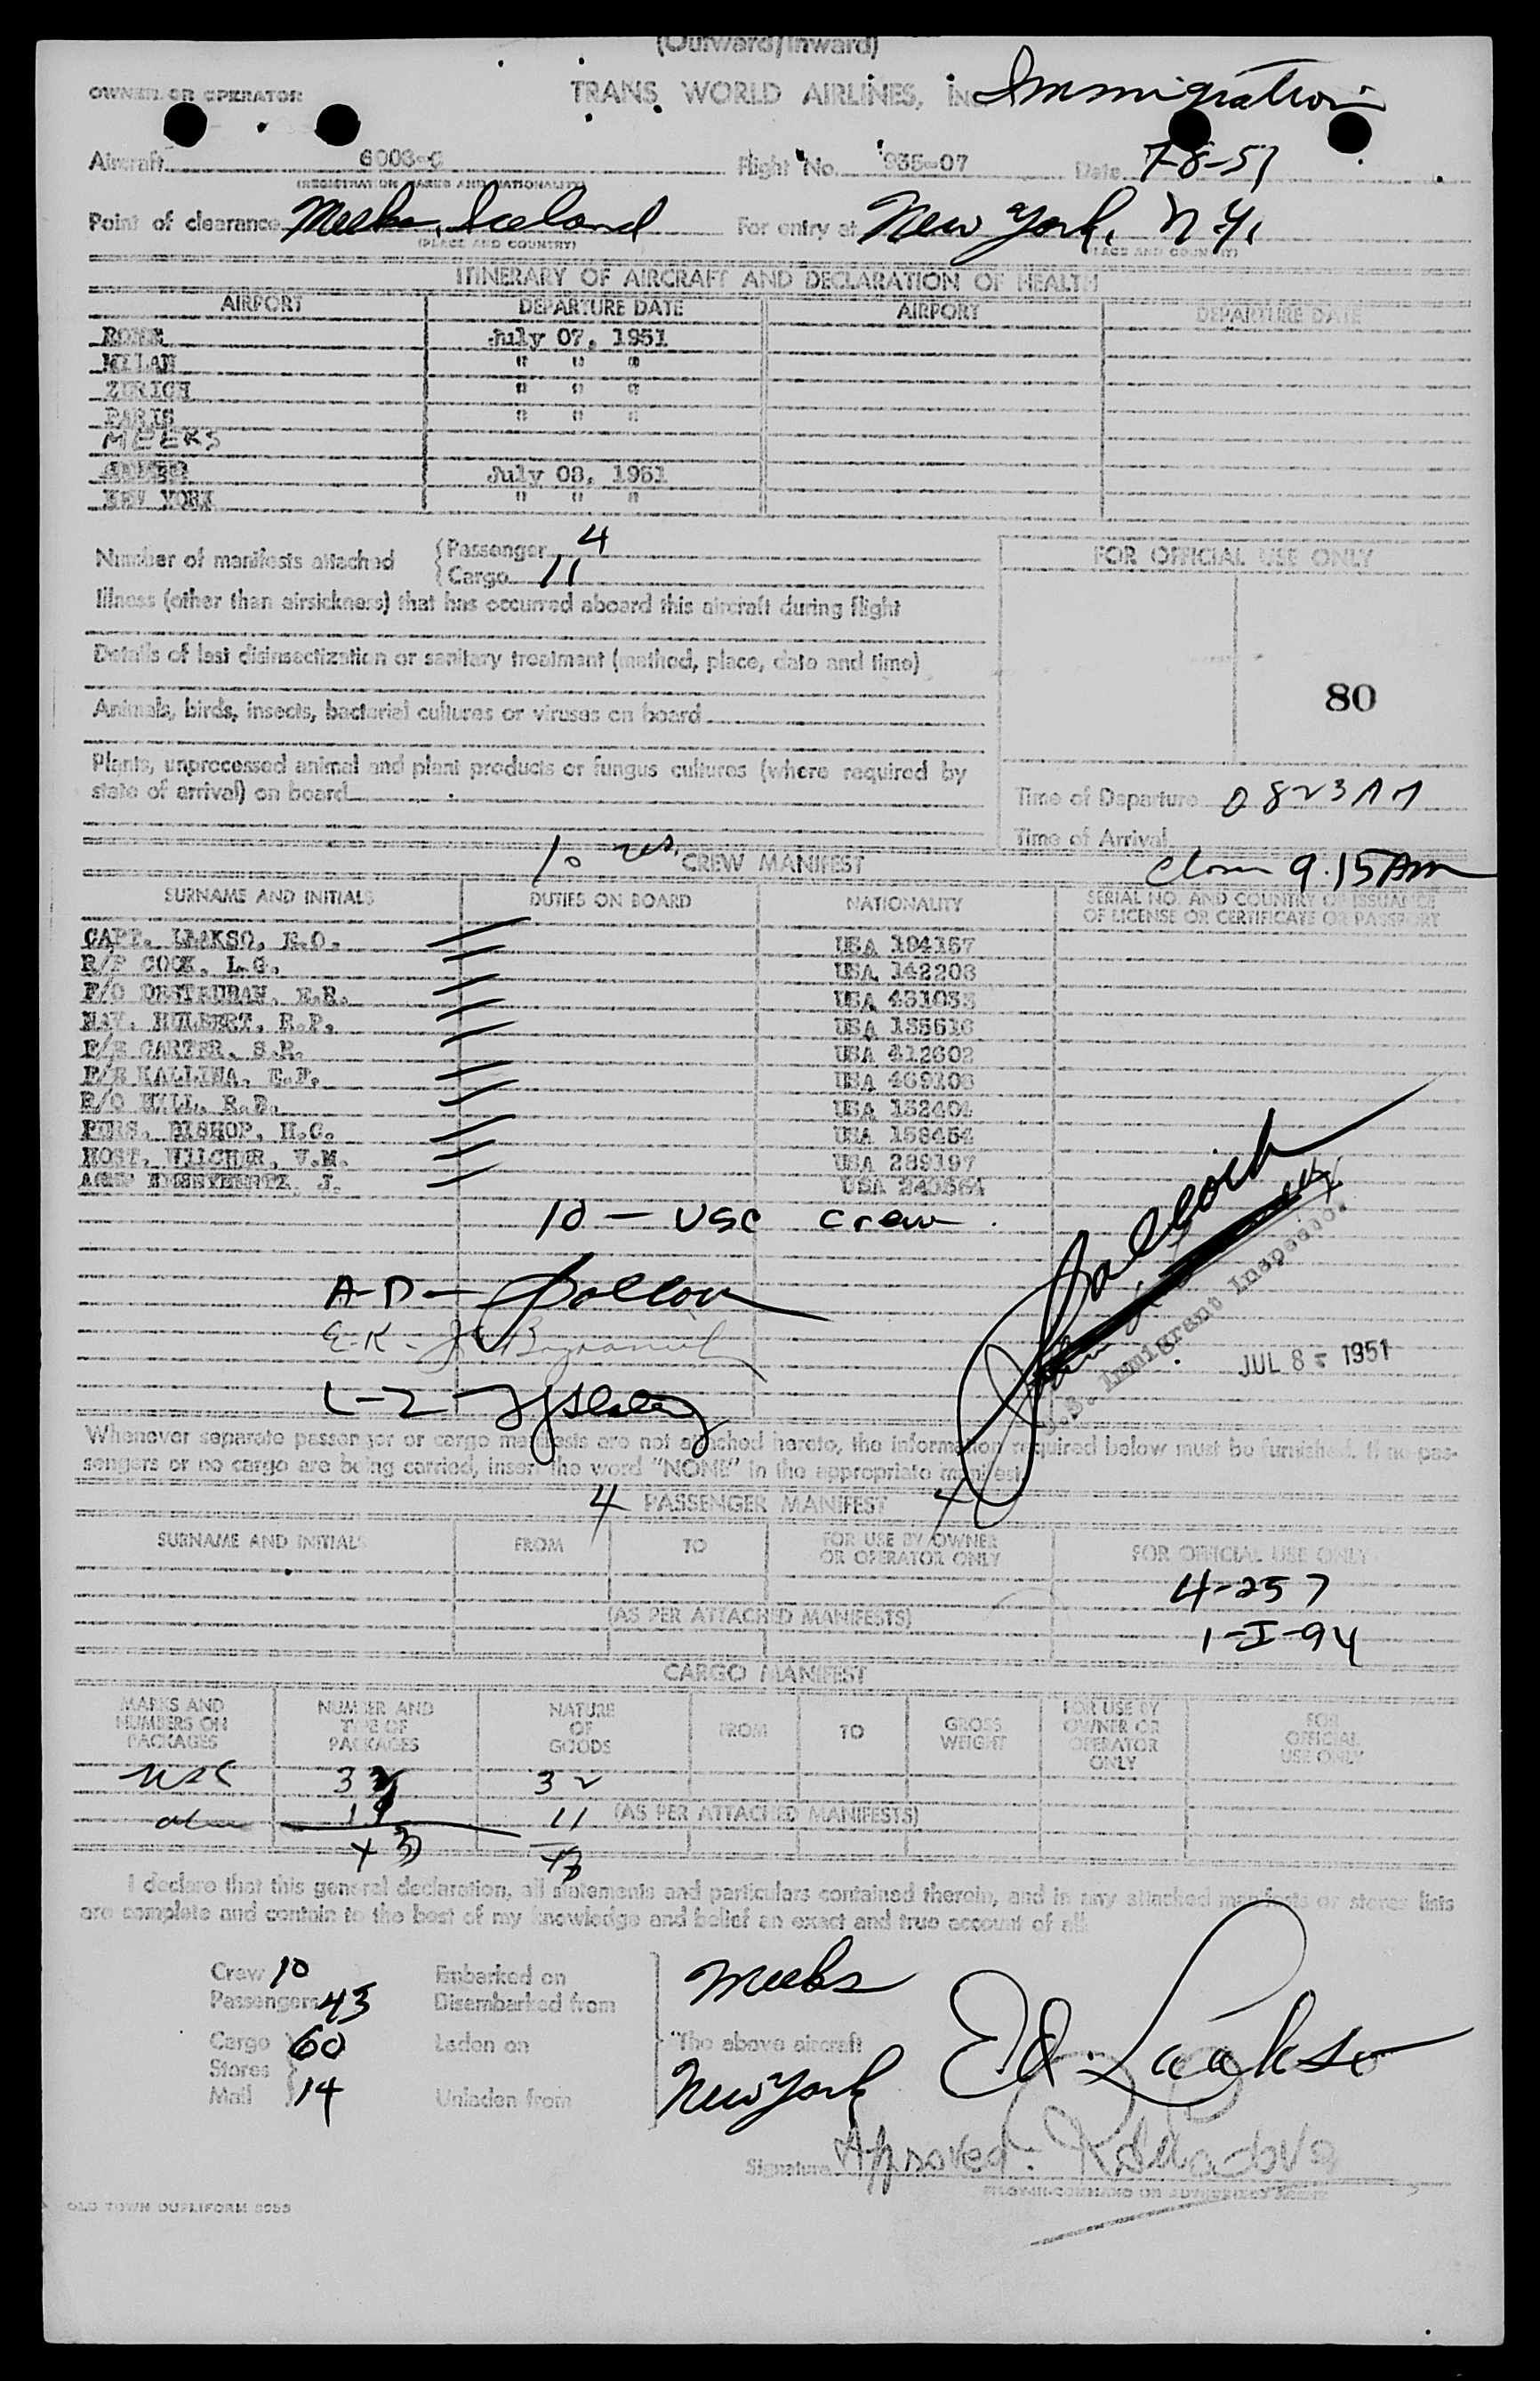 (Outward/Inward)
OWNER OR OPERATOR TRANS WORLD AIRLINES, INC. Immigration
Aircraft 6003-C Flight No. 935-07 Date 7-8-51
(REGISTRATION MARKS AND NATIONALITY)
Point of clearance Meeks, Iceland For entry at New York, N.Y.
(PLACE AND COUNTRY) (PLACE AND COUNTRY)
ITINERARY OF AIRCRAFT AND DECLARATION OF HEALTH
AIRPORT DEPARTURE DATE AIRPORT DEPARTURE DATE
ROME July 07, 1951
MILAN " " "
ZURICH " " "
PARIS " " "
MEEKS
July 08, 1951
NEW YORK " " "
Number of manifests attached { Passenger 4
{ Cargo 11
Illness (other than airsickness) that has occurred aboard this aircraft during flight
Details of last disinsectization or sanitary treatment (method, place, date and time)
Animals, birds, insects, bacterial cultures or viruses on board
Plants, unprocessed animal and plant products or fungus cultures (where required by
state of arrival) on board
FOR OFFICIAL USE ONLY
80
Time of Departure 0823 AM
Time of Arrival
9.15 AM
10 CREW MANIFEST
SURNAME AND INITIALS DUTIES ON BOARD NATIONALITY SERIAL NO. AND COUNTRY OF ISSUANCE
OF LICENSE OR CERTIFICATE OR PASSPORT
CAPT. LAAKSO, E.O. USA 194157
R/P COOK, L.G. USA 142203
F/O E.R. USA
NAV. HULBERT, R.P. USA
F/E CARTER, S.R. USA 412602
F/E KALLINA, E.F. USA 469203
R/O HILL, R.B. USA
PURS. BISHOP, H.G. USA 158454
HOST. WILCHER, V.M. USA 289197
J. USA
10 - USC crew
A-D -
E-K -
L-Z
U.S. Immigrant Inspector
JUL 8 - 1951
Whenever separate passenger or cargo manifests are not attached hereto, the information required below must be furnished. If no pas-
sengers or no cargo are being carried, insert the word "NONE" in the appropriate manifest.
4 PASSENGER MANIFEST
SURNAME AND INITIALS FROM TO FOR USE BY OWNER
OR OPERATOR ONLY FOR OFFICIAL USE ONLY
4-257
(AS PER ATTACHED MANIFESTS)
1-I-94
CARGO MANIFEST
MARKS AND
NUMBERS ON
PACKAGES NUMBER AND
TYPE OF
PACKAGES NATURE
OF
GOODS FROM TO GROSS
WEIGHT FOR USE BY
OWNER OR
OPERATOR
ONLY FOR
OFFICIAL
USE ONLY
USC 32
11 (AS PER ATTACHED MANIFESTS)
I declare that this general declaration, all statements and particulars contained therein, and in any attached manifests or stores lists
are complete and contain to the best of my knowledge and belief an exact and true account of all
Crew 10 Embarked on Meeks
Passengers 43 Disembarked from
Cargo 60 Laden on "The above aircraft Ed. Laakso
Stores
Mail 14 Unladen from New York
Signature Approved:
PILOT-IN-COMMAND OR AUTHORIZED AGENT
OLD TOWN DUPLIFORM